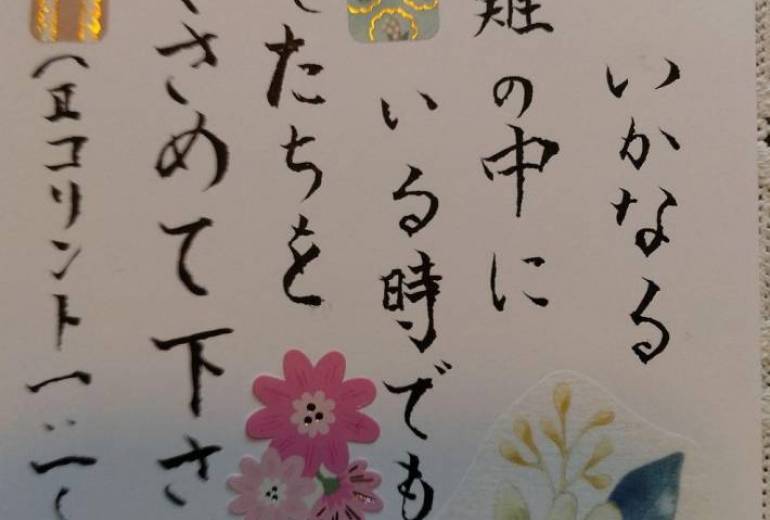 いかなる
難の中に
いる時でも
たちを
さめて下さ
(Ⅱコリント一:一